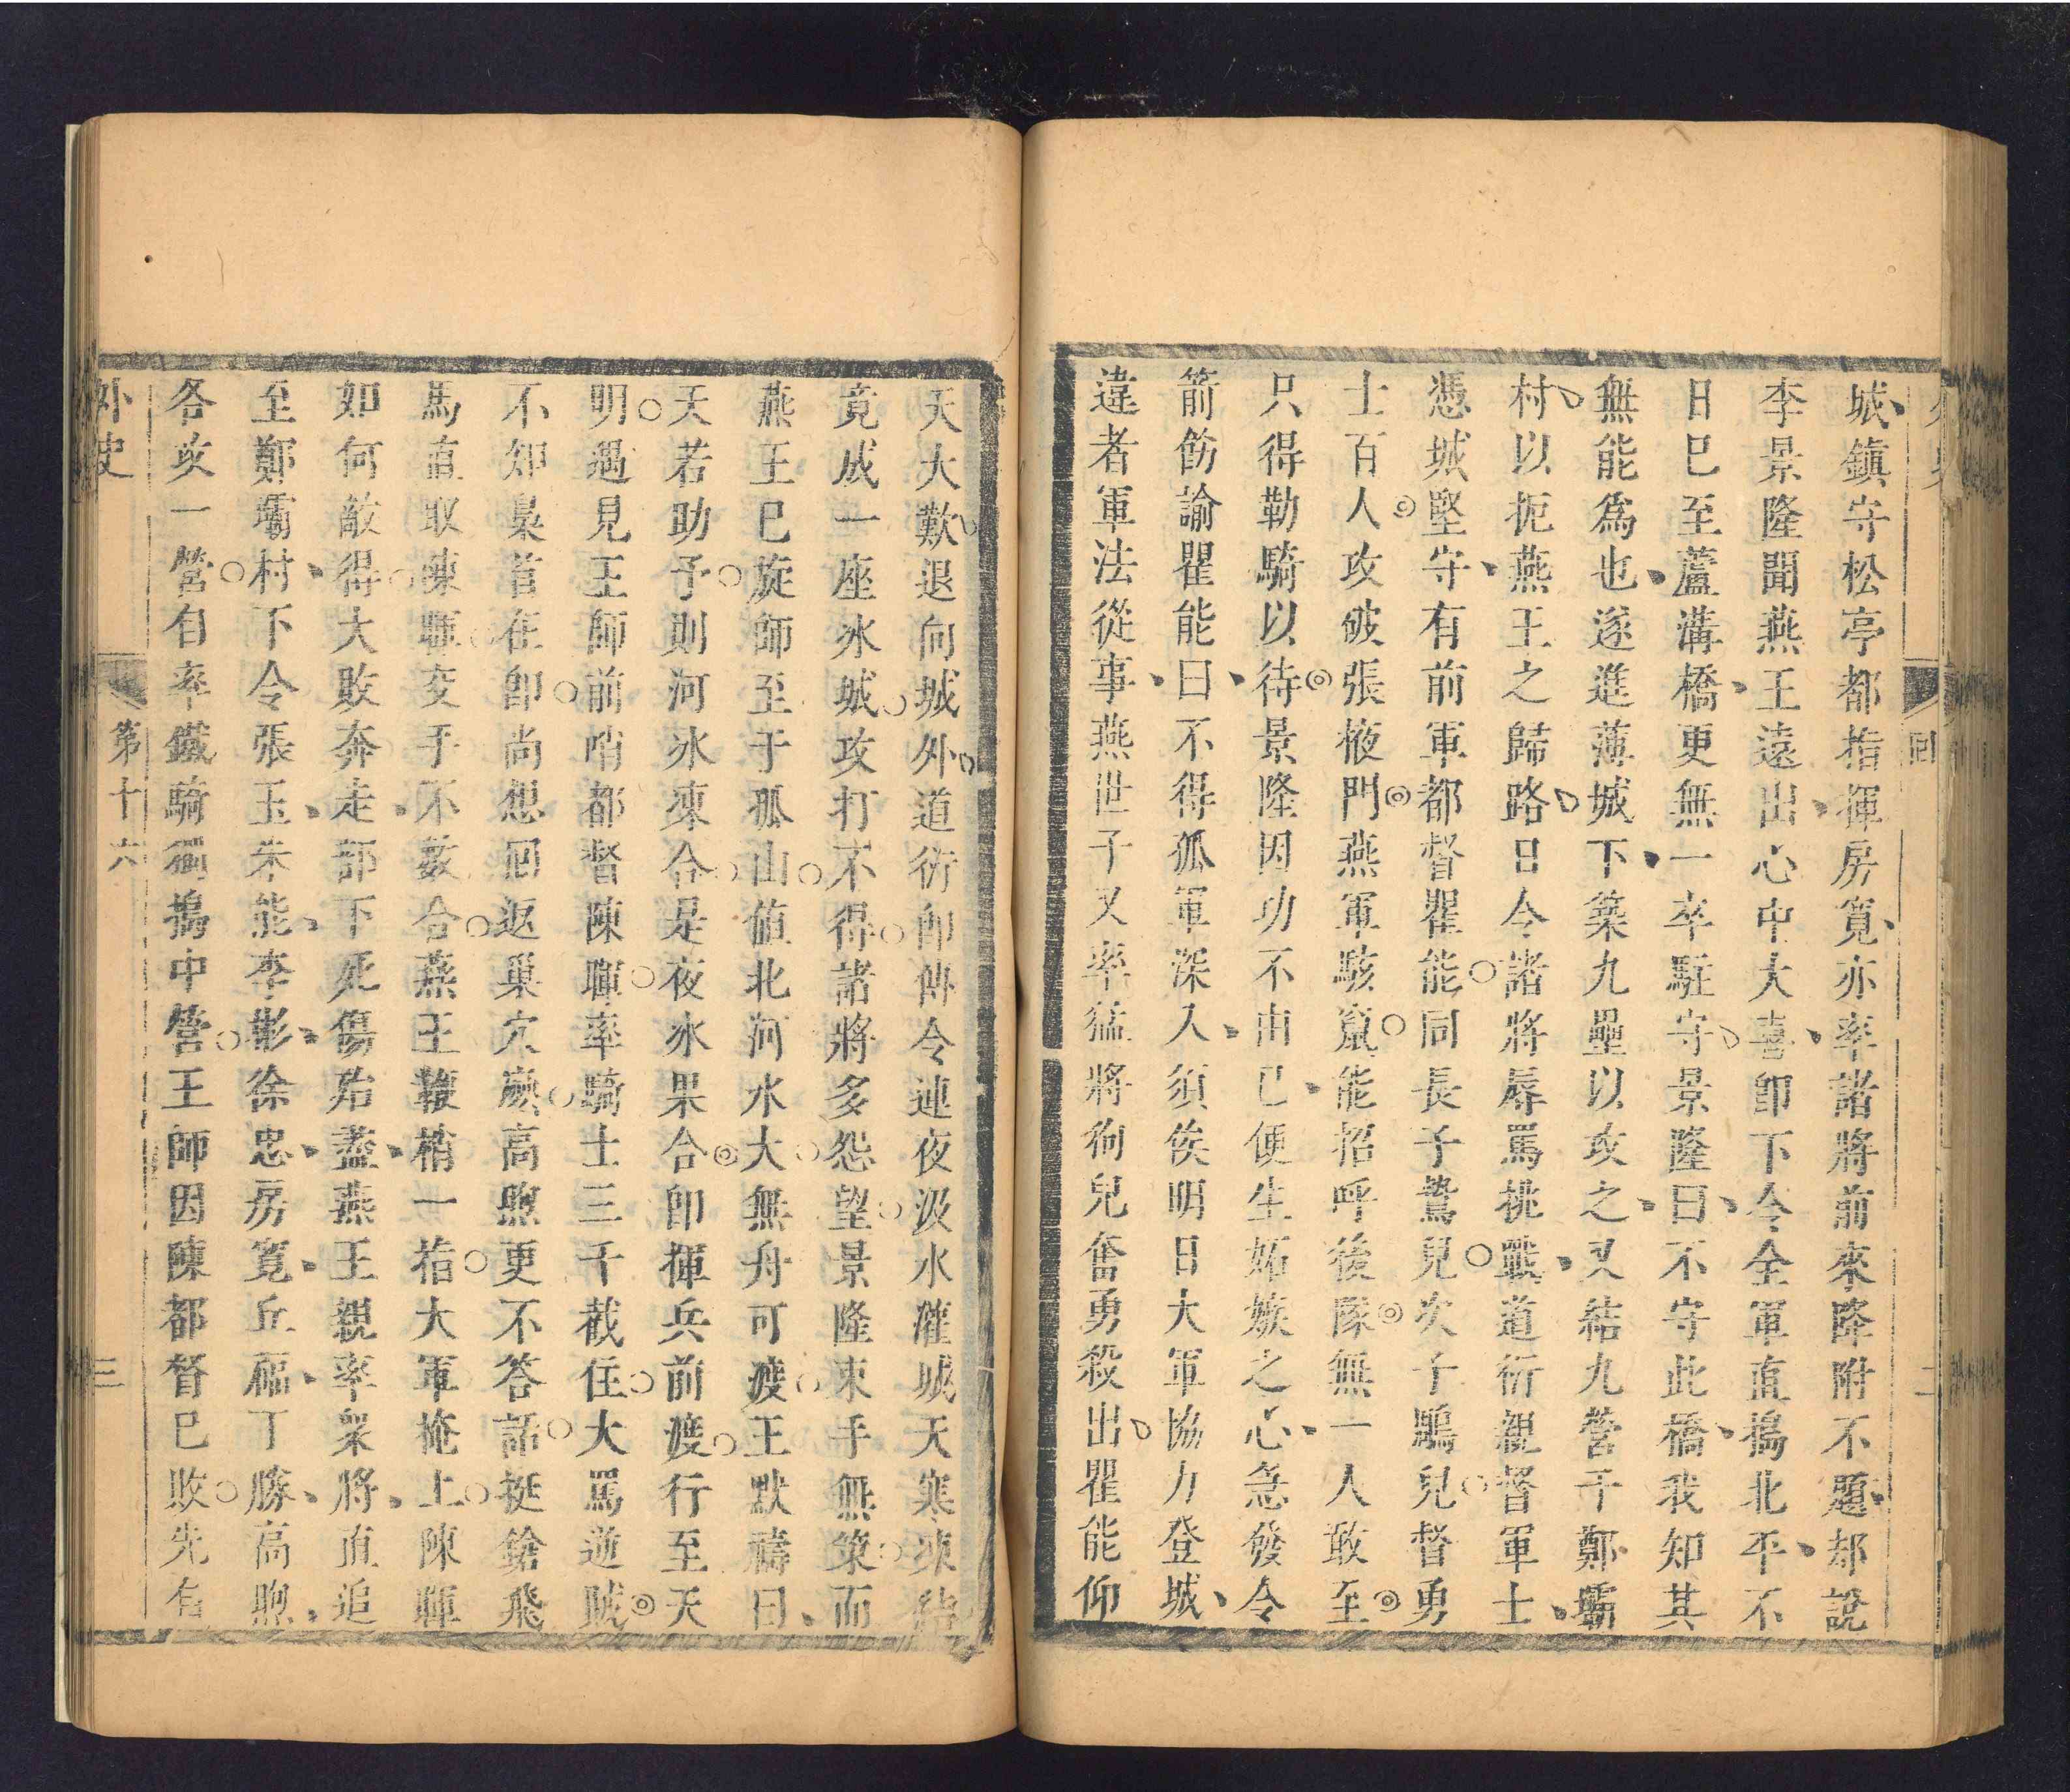 城鎮守松亭都指揮房寬亦率諸將前來降附不題却說
李景隆聞燕王遠出心中大喜卽下令全軍直搗北平不
日已至蘆溝橋更無一卒駐守景隆曰不守此橋我知其
無能爲也遂進薄城下築九壘以攻之又結九營于鄭壩
村以扼燕王之歸路日令諸將辱罵挑戰道衍親督軍士
憑城堅守有前軍都督瞿能同長子驁兒次子鵰兒督勇
士百人攻破張掖門燕軍駭竄能招呼後隊無一人敢至
只得勒騎以待景隆因功不由己便生妬嫉之心急發令
箭飭諭瞿能曰不得孤軍深入須俟明日大軍協力登城
違者軍法從事燕世子又率猛將狗兒奮勇殺出瞿能仰
天大歎退向城外道衍卽傳令連夜汲水灌城天寒凍結
竟成一座冰城攻打不得諸將多怨望景隆束手無策而
燕王已旋師至于孤山值北河水大無舟可渡王默禱曰
天若助予則河冰凍合是夜冰果合卽揮兵前渡行至天
明遇見王師前哨都督陳暉率騎士三千截住大罵逆賊
不知梟首在卽尚想回返巢穴麽高煦更不答話挺鎗飛
馬直取陳暉交手不數合燕王鞭梢一指大軍掩上陳暉
如何敵得大敗奔走部下死傷殆盡燕王親率衆將直追
至鄭壩村下令張玉朱能李彬徐忠房寬丘福丁勝高煦
各攻一營自率鐵騎獨搗中營王師因陳都督已敗先有
外史
第十六
三